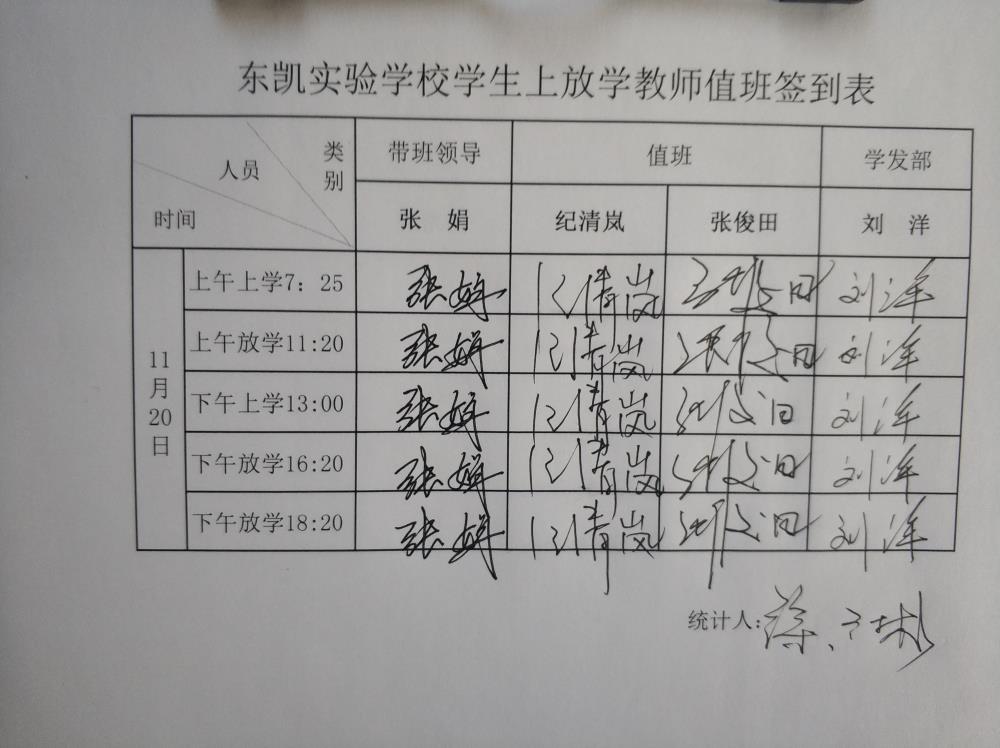 东凯实验学校学生上放学教师值班签到表
类别 人员 时间 带班领导 值班 学发部
张 娟 纪清岚 张俊田 刘 洋
11月20日
上午上学7：25 张娟 纪清岚 张俊田 刘洋
上午放学11:20 张娟 纪清岚 张俊田 刘洋
下午上学13:00 张娟 纪清岚 张俊田 刘洋
下午放学16:20 张娟 纪清岚 张俊田 刘洋
下午放学18:20 张娟 纪清岚 张俊田 刘洋
统计人: